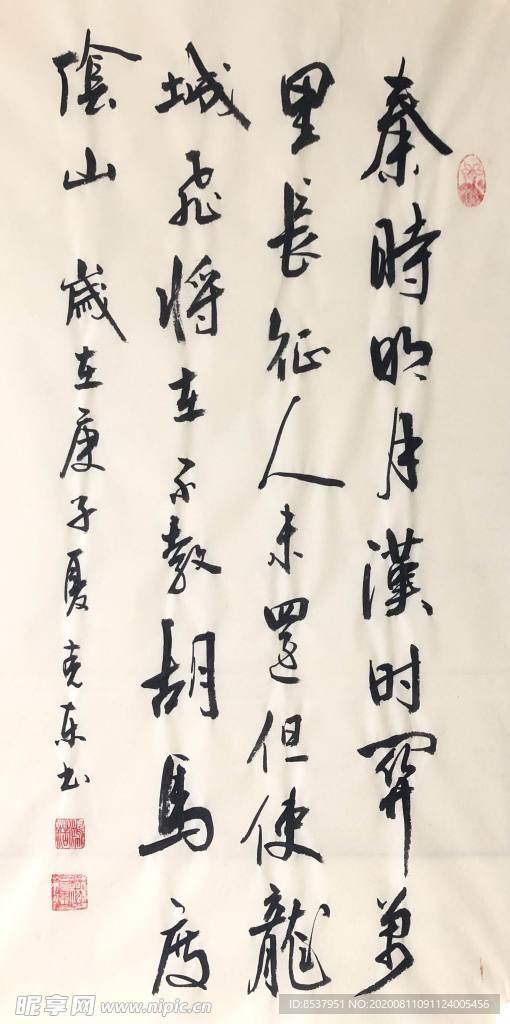 秦時明月漢时関萬
里長征人未還但使龍
城飛将在不教胡馬度
陰山 歳在庚子夏克东书
昵享网 www.nipic.cn
ID:8537951 NO:20200811091124005456